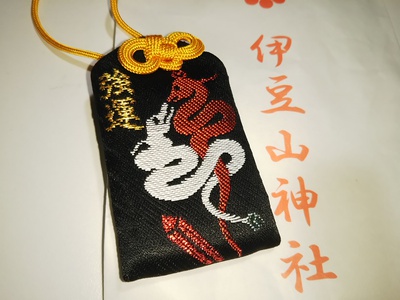 強運
伊豆山神社